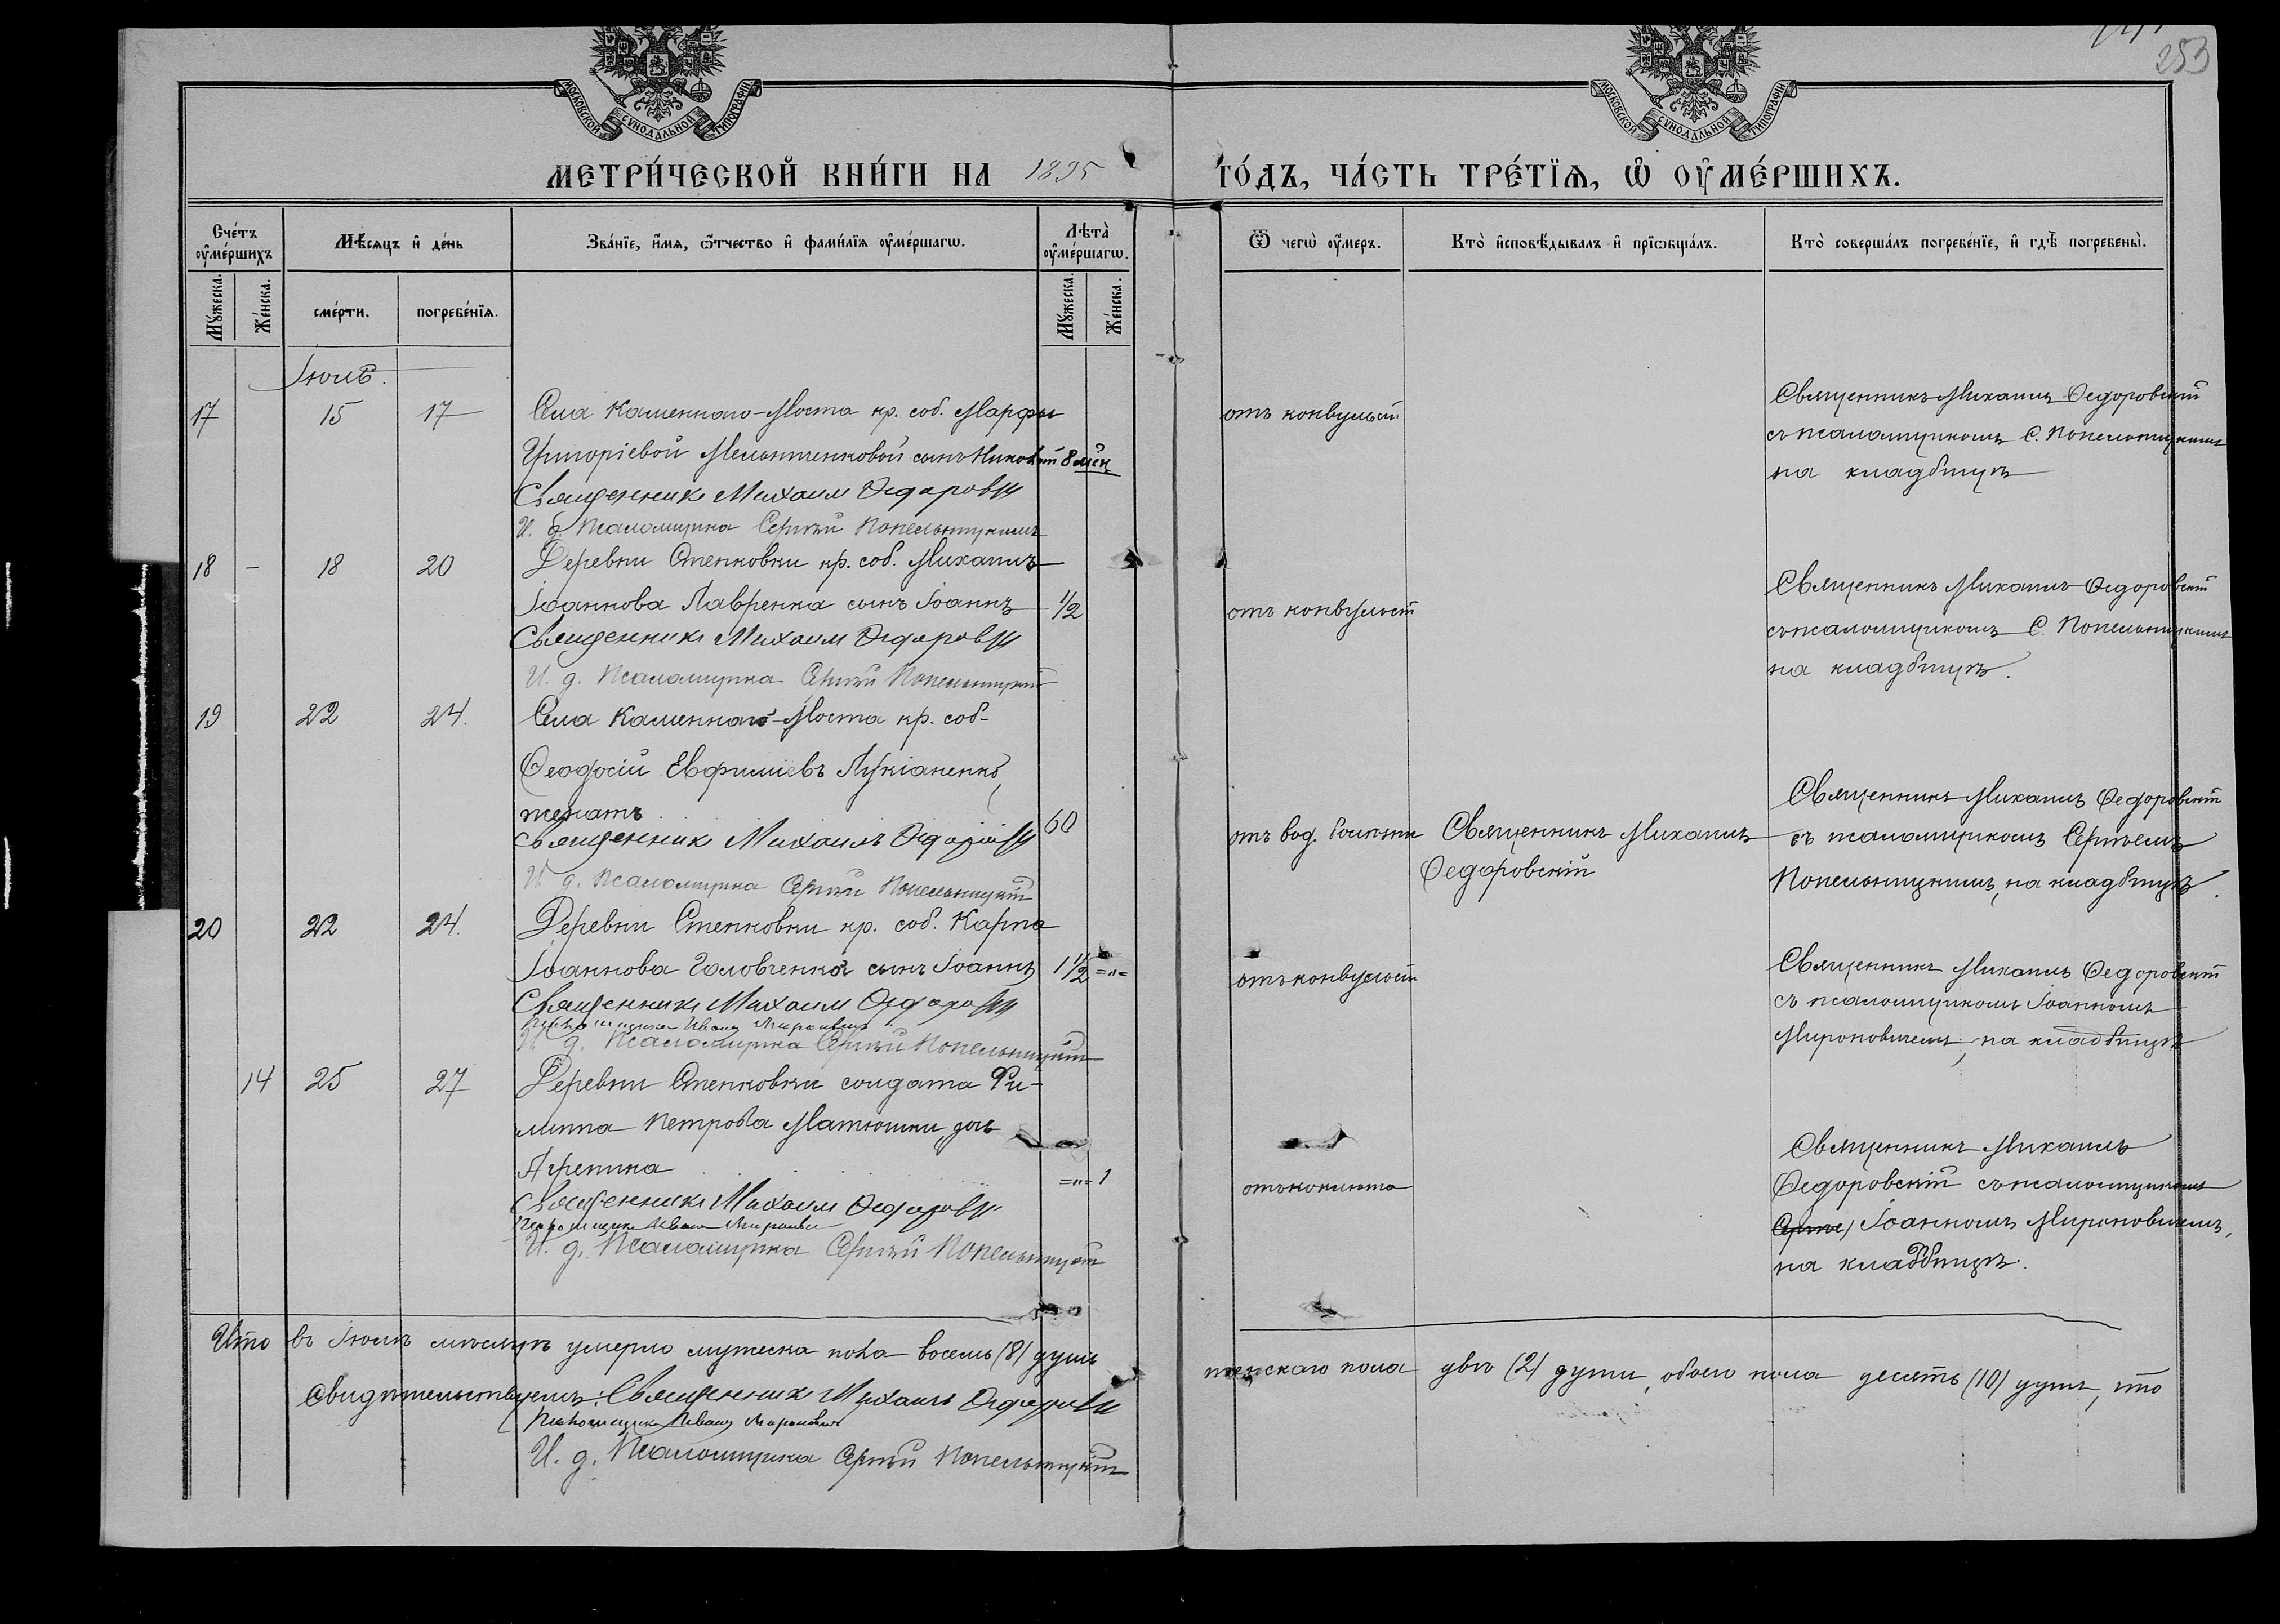 253
МОСКОВСКОЙ СУНОДАЛЬНОЙ ТИПОГРАФІИ.
МОСКОВСКОЙ СУНОДАЛЬНОЙ ТИПОГРАФІИ.
МЕТРИ́ЧЕСКОЙ КНИ́ГИ НА 1895 ГО́ДЪ, ЧА́СТЬ ТРЕ́ТЇѦ, Ѡ҆ ОУ҆МЕ́РШИХЪ.
Сче́тъ оу҆ме́ршихъ
Мѣ́сяцъ и҆ де́нь
Зва́нїе, и҆́мя, ѻ҆́тчество и҆ фами́лїя оу҆ме́ршагѡ.
Лѣта̀ оу҆ме́ршагѡ.
Ѿ чегѡ̀ оу҆́меръ.
Кто̀ и҆сповѣ́дывалъ и҆ прїѡбща́лъ.
Кто̀ соверша́лъ погребе́нїе, и҆ гдѣ̀ погребены̀.
Му́жеска.
Же́нска.
сме́рти.
погребе́нїя.
Му́жеска.
Же́нска.
Іюль.
17 15 17 Села Каменнаго-Моста кр. соб. Марфы
Григоріевой Мельниченковой сынъ Николай 8 мѣс
Священникъ Михаилъ Ѳедоровскій
И. д. Псаломщика Сергѣй Попельницкій
отъ конвульсій
Священникъ Михаилъ Ѳедоровскій
съ псаломщикомъ С. Попельницкимъ
на кладбищѣ
18 - 18 20 Деревни Степковки кр. соб. Михаила
Іоаннова Лавренка сынъ Іоаннъ 1/2
Священникъ Михаилъ Ѳедоровскій
И. д. Псаломщика Сергѣй Попельницкій
отъ конвульсій
Священникъ Михаилъ Ѳедоровскій
съ псаломщикомъ С. Попельницкимъ
на кладбищѣ.
19 22 24. Села Каменнаго-Моста кр. соб-
Ѳеодосій Евфиміевъ Лукіаненко,
женатъ 60
Священникъ Михаилъ Ѳедоровскій
И. д. Псаломщика Сергѣй Попельницкій
отъ вод. болѣзни
Священникъ Михаилъ
Ѳедоровскій
Священникъ Михаилъ Ѳедоровскій
съ псаломщикомъ Сергѣемъ
Попельницкимъ, на кладбищѣ.
20 22 24. Деревни Степковки кр. соб. Карпа
Іоаннова Головченка сынъ Іоаннъ 1 1/2 ="=
Священникъ Михаилъ Ѳедоровскій
Псаломщикъ Иванъ Мироновичъ
И. д. Псаломщика Сергѣй Попельницкій
отъ конвульсій
Священникъ Михаилъ Ѳедоровскій
съ псаломщикомъ Іоанномъ
Мироновичемъ, на кладбищѣ
14 25 27 Деревни Степковки солдата Фи-
липпа Петрова Матюшки дочь
Агрепина ="= 1
Священникъ Михаилъ Ѳедоровскій
Псаломщикъ Иванъ Мироновичъ
И. д. Псаломщика Сергѣй Попельницкій
отъ коклюша
Священникъ Михаилъ
Ѳедоровскій съ псаломщикомъ
Сергѣе) Іоанномъ Мироновичемъ,
на кладбищѣ.
Итого въ Іюлѣ мѣсяцѣ умерло мужеска пола восемь (8) душъ женскаго пола двѣ (2) души, обоего пола десять (10) душъ, что
свидѣтельствуемъ: Священникъ Михаилъ Ѳедоровскій
Псаломщикъ Иванъ Мироновичъ
И. д. Псаломщика Сергѣй Попельницкій